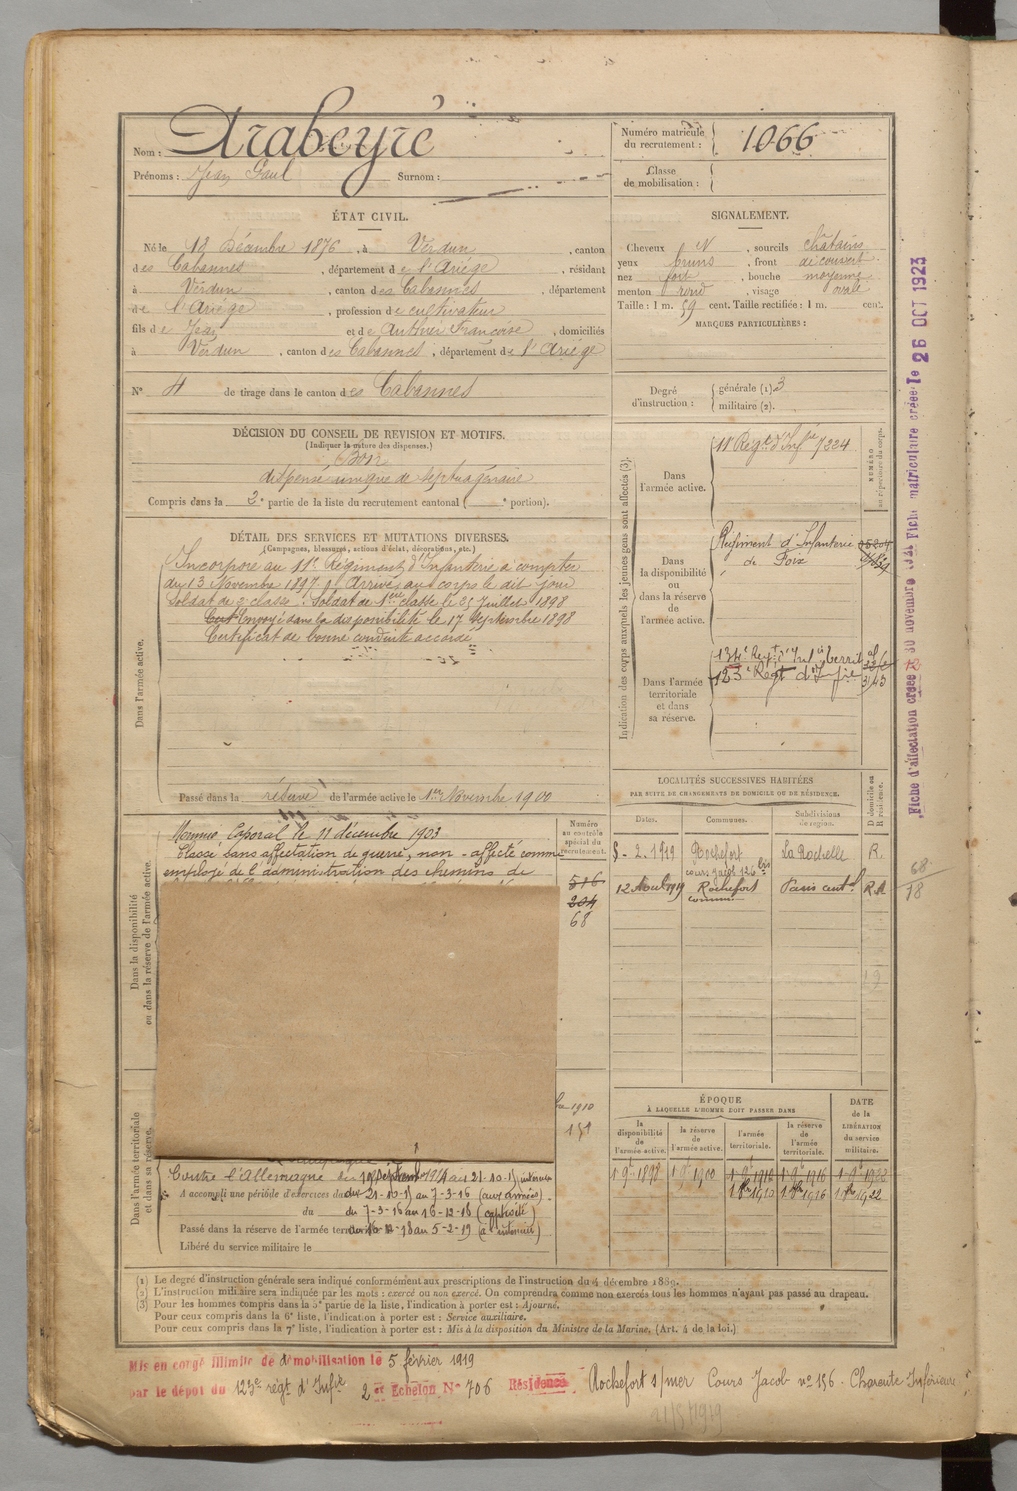 Nom : Arabeyre
Prénoms : Jean Paul Surnom :
Numéro matricule du recrutement : 1066
Classe de mobilisation :
ÉTAT CIVIL.
Né le 18 Décembre 1876, à Verdun, canton
des Cabannes, département de l'Ariége, résidant
à Verdun, canton des Cabannes, département
de l'Ariége, profession de cultivateur
fils de Jean et de Authier Françoise, domiciliés
à Verdun, canton des Cabannes, département de l'Ariége
N° 4 de tirage dans le canton des Cabannes
SIGNALEMENT.
Cheveux N, sourcils châtains
yeux bruns, front découvert
nez fort, bouche moyenne
menton rond, visage ovale
Taille : 1 m. 59 cent. Taille rectifiée : 1 m. cent.
MARQUES PARTICULIÈRES :
Degré d'instruction : générale (1). 3
militaire (2).
DÉCISION DU CONSEIL DE REVISION ET MOTIFS.
(Indiquer la nature des dispenses.)
Bon
dispensé unique de septuagénaire
Compris dans la 2e partie de la liste du recrutement cantonal ( e portion).
DÉTAIL DES SERVICES ET MUTATIONS DIVERSES.
(Campagnes, blessures, actions d'éclat, décorations, etc.)
Dans l'armée active.
Incorporé au 11e Régiment d'Infanterie à compter
du 13 Novembre 1897. Arrivé au corps le dit jour
Soldat de 2e classe. Soldat de 1ere classe le 25 Juillet 1898
Envoyé dans la disponibilité le 17 Septembre 1898
Certificat de bonne conduite accordé
Passé dans la réserve de l'armée active le 1er Novembre 1900
Indication des corps auxquels les jeunes gens sont affectés (3).
NUMÉRO au répertoire du corps.
Dans l'armée active.
11e Régt d'Infrie 7224
Dans la disponibilité ou dans la réserve de l'armée active.
Régiment d'Infanterie
de Foix
Dans l'armée territoriale et dans sa réserve.
134e Regt d'Infie territ
123e Régt d'Infie
Fiche d'affectation créée le 30 novembre
Fiche matriculaire créée le 26 OCT 1923
Dans la disponibilité ou dans la réserve de l'armée active.
Nommé Caporal le 11 décembre 1903
Classé sans affectation de guerre, non-affecté comme
employé de l'administration des chemins de
Numéro au contrôle spécial du recrutement.
516
204
68
LOCALITÉS SUCCESSIVES HABITÉES
PAR SUITE DE CHANGEMENTS DE DOMICILE OU DE RÉSIDENCE.
Dates. Communes. Subdivisions de région. D domicile ou R résidence.
5-2.1919 Rochefort La Rochelle R.
12 Aout 1919 Rochefort Paris centl
68
78
1910
Dans l'armée territoriale et dans sa réserve.
Contre l'Allemagne
A accompli une période d'exercices du 21-10-15 au 7-3-16 (aux armées)
du 7-3-16 au 16-12-18 (captivité)
Passé dans la réserve de l'armée territoriale au 5-2-19 (à l'intérieur)
Libéré du service militaire le
ÉPOQUE
À LAQUELLE L'HOMME DOIT PASSER DANS
la disponibilité de l'armée active. la réserve de l'armée active. l'armée territoriale. la réserve de l'armée territoriale.
DATE de la LIBÉRATION du service militaire.
(1) Le degré d'instruction générale sera indiqué conformément aux prescriptions de l'instruction du 4 décembre 1889.
(2) L'instruction militaire sera indiquée par les mots : exercé ou non exercé. On comprendra comme non exercés tous les hommes n'ayant pas passé au drapeau.
(3) Pour les hommes compris dans la 5e partie de la liste, l'indication à porter est : Ajourné.
Pour ceux compris dans la 6e liste, l'indication à porter est : Service auxiliaire.
Pour ceux compris dans la 7e liste, l'indication à porter est : Mis à la disposition du Ministre de la Marine, (Art. 4 de la loi.)
Mis en congé illimité de démobilisation le 5 février 1919
par le dépôt du 123e régt d'Infie 2 er Echelon N° 706 Résidence Rochefort s/mer Cours Jacob n° 156 - Charente Inférieure